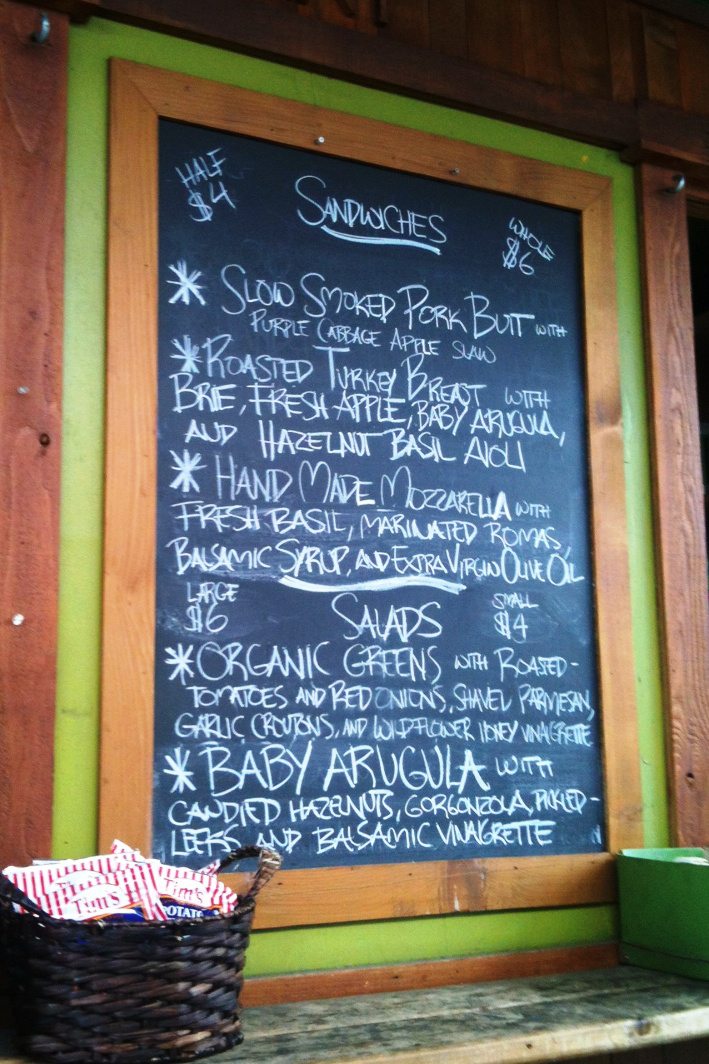 HALF
$4
SANDWICHES
WHOLE
$6
* SLOW SMOKED PORK BUTT WITH
PURPLE CABBAGE APPLE SLAW
* ROASTED TURKEY BREAST WITH
BRIE, FRESH APPLE, BABY ARUGULA,
AND HAZELNUT BASIL AIOLI
* HAND MADE MOZZARELLA WITH
FRESH BASIL, MARINATED ROMAS,
BALSAMIC SYRUP, AND EXTRA VIRGIN OLIVE OIL
LARGE
$6
SALADS
SMALL
$4
* ORGANIC GREENS WITH ROASTED-
TOMATOES AND RED ONIONS, SHAVED PARMESAN,
GARLIC CROUTONS, AND WILDFLOWER HONEY VINAIGRETTE
* BABY ARUGULA WITH
CANDIED HAZELNUTS, GORGONZOLA, PICKLED-
LEEKS AND BALSAMIC VINAGRETTE
Tim's
Tim's